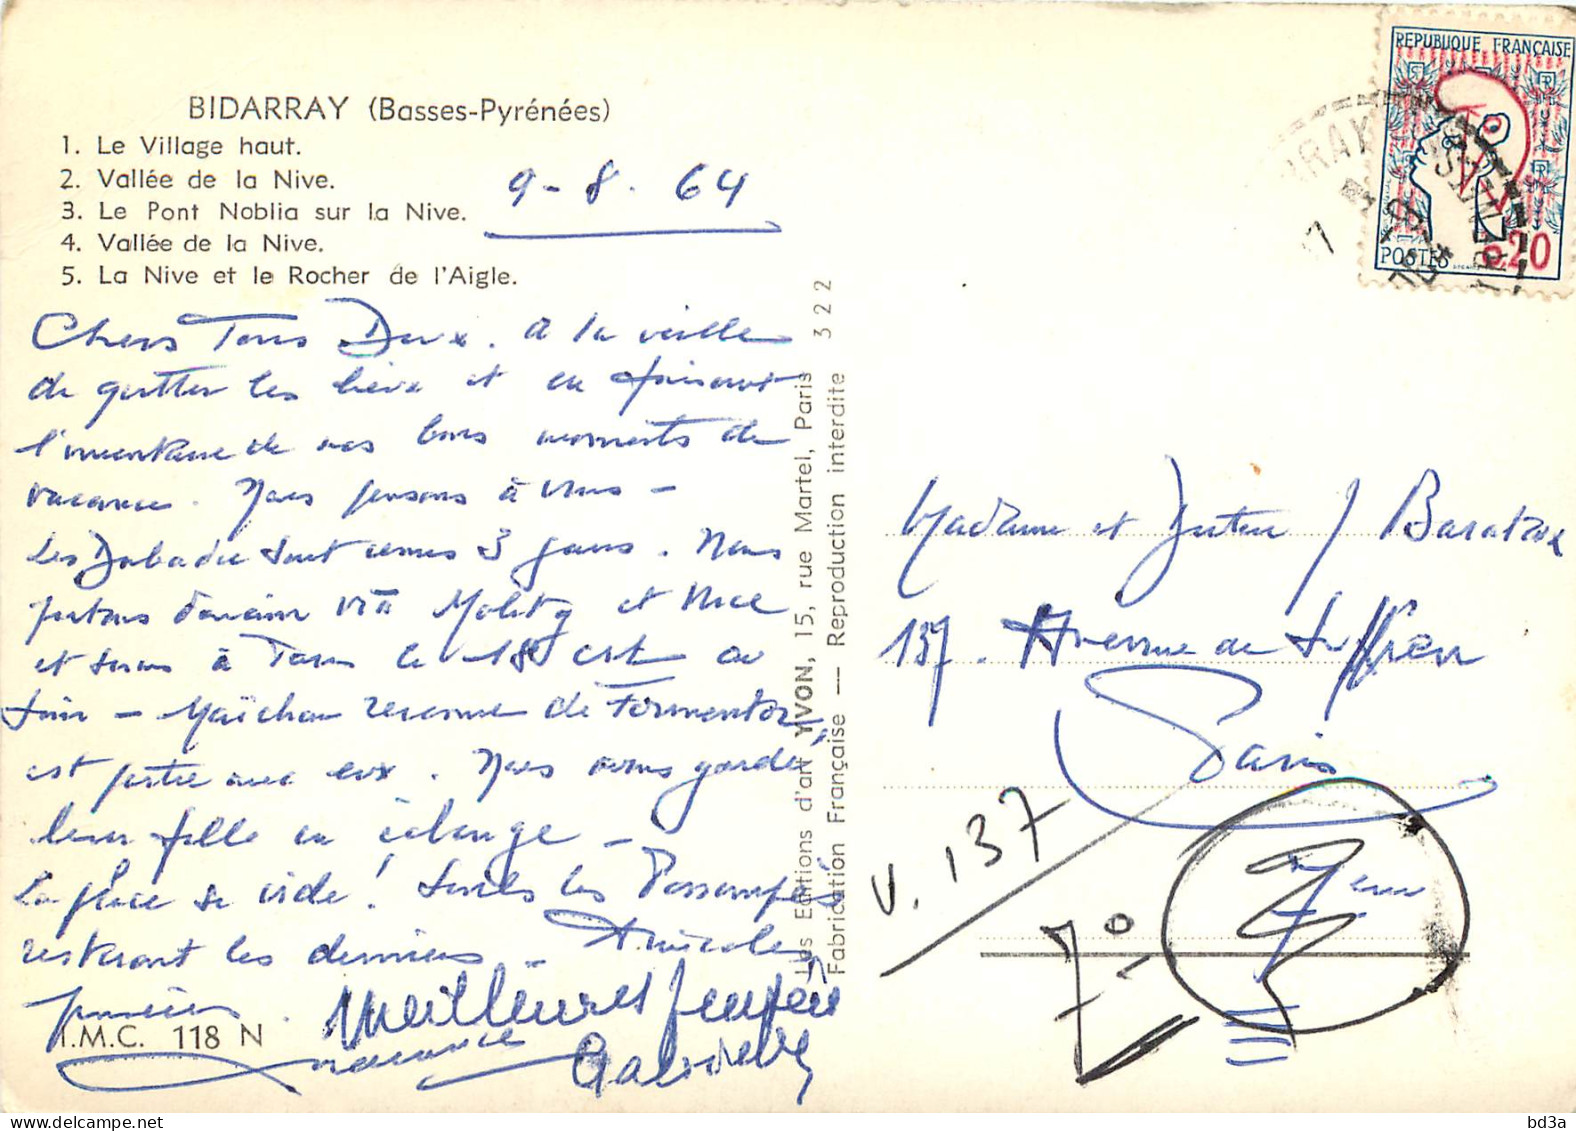 BIDARRAY (Basses-Pyrénées)
1. Le Village haut.
2. Vallée de la Nive.
3. Le Pont Noblia sur la Nive.
4. Vallée de la Nive.
5. La Nive et le Rocher de l'Aigle.
9-8. 64
Chers Tous Deux. A la veille
de quitter les lieux et en faisant
l'inventaire de nos bons moments de
vacances. Nous pensons à vous -
Les sont venus 3 jours. Nous
partons demain via Molitg et Nice
et serons à Paris le 18 au
soir - Maïchou revenue de Tormentor
est partie avec eux. Nous avons gardé
leur fille en échange -
La place se vide! Seuls les
resteront les derniers - Amicales
pensées.
Meilleures pensées
I.M.C. 118 N
Les Editions d'art YVON, 15, rue Martel, Paris 322
Fabrication Française — Reproduction interdite
REPUBLIQUE FRANÇAISE
POSTES 0,20
Madame et J
137. Avenue de Suffren
Paris
7eme
V. 137
7°
bd3a